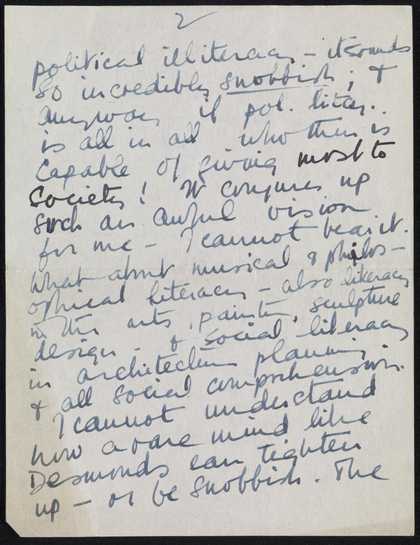 2
political illiteracy – it sounds
so incredibly snobbish; &
anyway if pol. litcy.
is all in all who then is
capable of giving most to
Society! It conjures up
such an awful vision
for me – I cannot bear it.
What about musical & philos–
ophical literacy – also literacy
in the arts, painting, sculpture
design – & social literacy
in architecture planning
& all social comprehension.
I cannot understand
how a rare mind like
Desmonds can tighten
up – or be snobbish. The